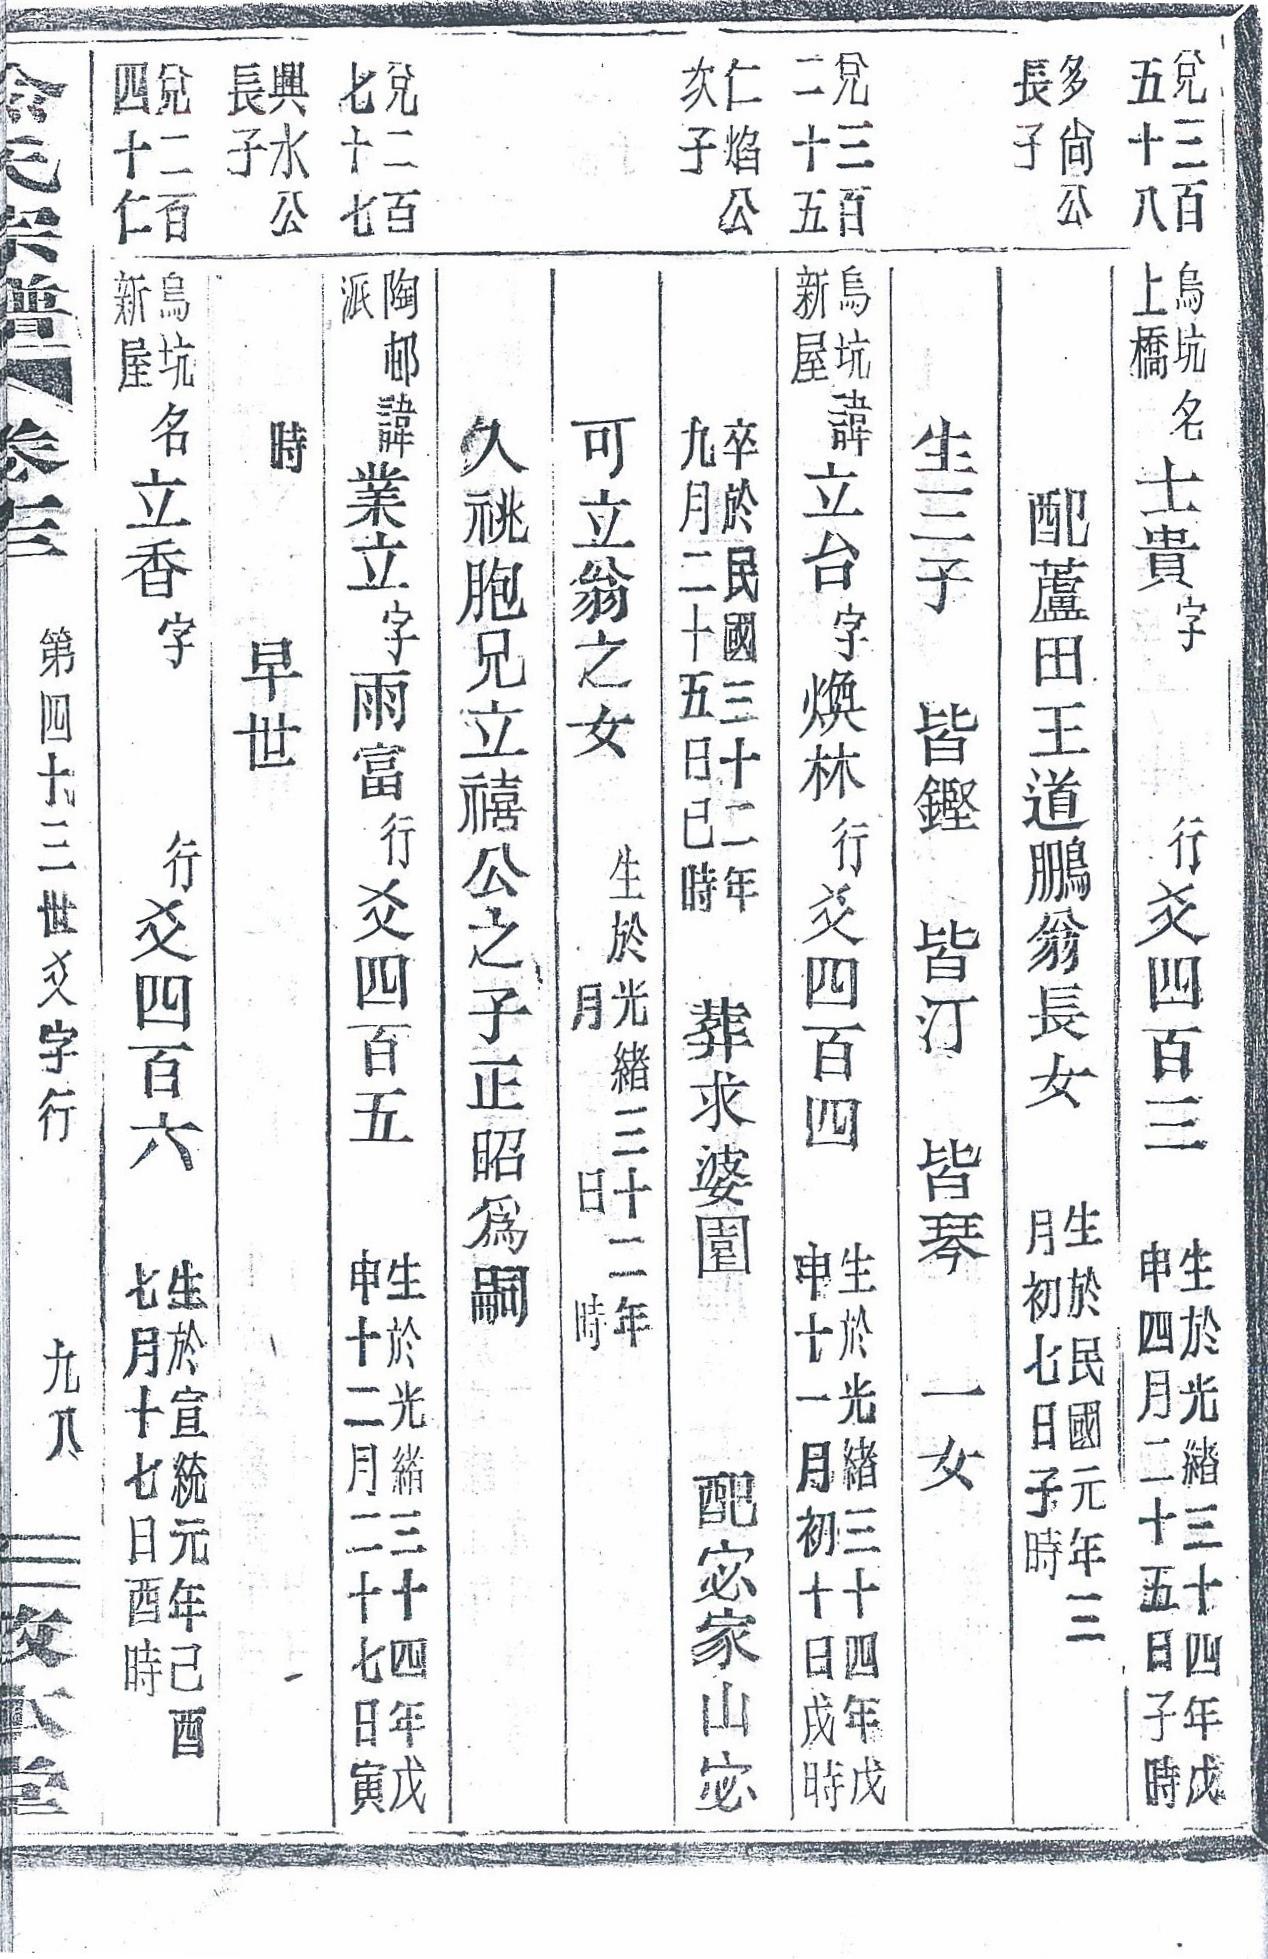 兌三百五十八
烏坑上橋 名士貴字 行爻四百三 生於光緒三十四年戊申四月二十五日子時
多尙公長子
配蘆田王道鵬翁長女 生於民國元年三月初七日子時
生三子 皆鏗 皆汀 皆琴 一女
兌三百二十五
烏坑新屋 諱立台字煥林行爻四百四 生於光緒三十四年戊申十一月初十日戌時
仁焰公次子
卒於民國三十二年九月二十五日巳時 葬求婆園 配宓家山宓
可立翁之女 生於光緒三十二年 月 日 時
久祧胞兄立禧公之子正昭爲嗣
兌二百七十七
陶邨派 諱業立字雨富行爻四百五 生於光緒三十四年戊申十二月二十七日寅
興水公長子
時 早世
兌二百四十仁
烏坑新屋 名立香字 行爻四百六 生於宣統元年己酉七月十七日酉時
氏宗譜 卷三 第四十三世爻字行 九八 堂